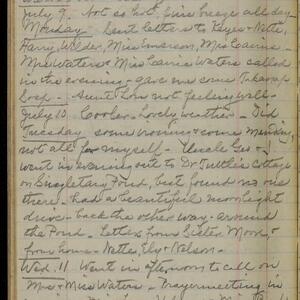 July 9. Not so hot, fine breeze all day.
Monday Sent letters to Keyes & Nette,
Harry, Wilder, Miss Emerson, Mrs Cairns.
Mrs Waters & Miss Cairns Waters called
in the evening - gave me some
Soap - Aunt Lou not feeling well -
July 10. Cooler - Lovely weather - Did
Tuesday some ironing & some mending
not all for myself - Uncle Geo &
went in evening out to Dr Tuttle's Cottage
on Singletary Pond, but found no one
there - had a beautiful moonlight
drive - back the other way - around
the Pond. Letters from Sister Moon &
from home - Nette, Ely & Nelson.
Wed. 11 Went in afternoon to call on
Mrs & Miss Waters - Prayermeeting in